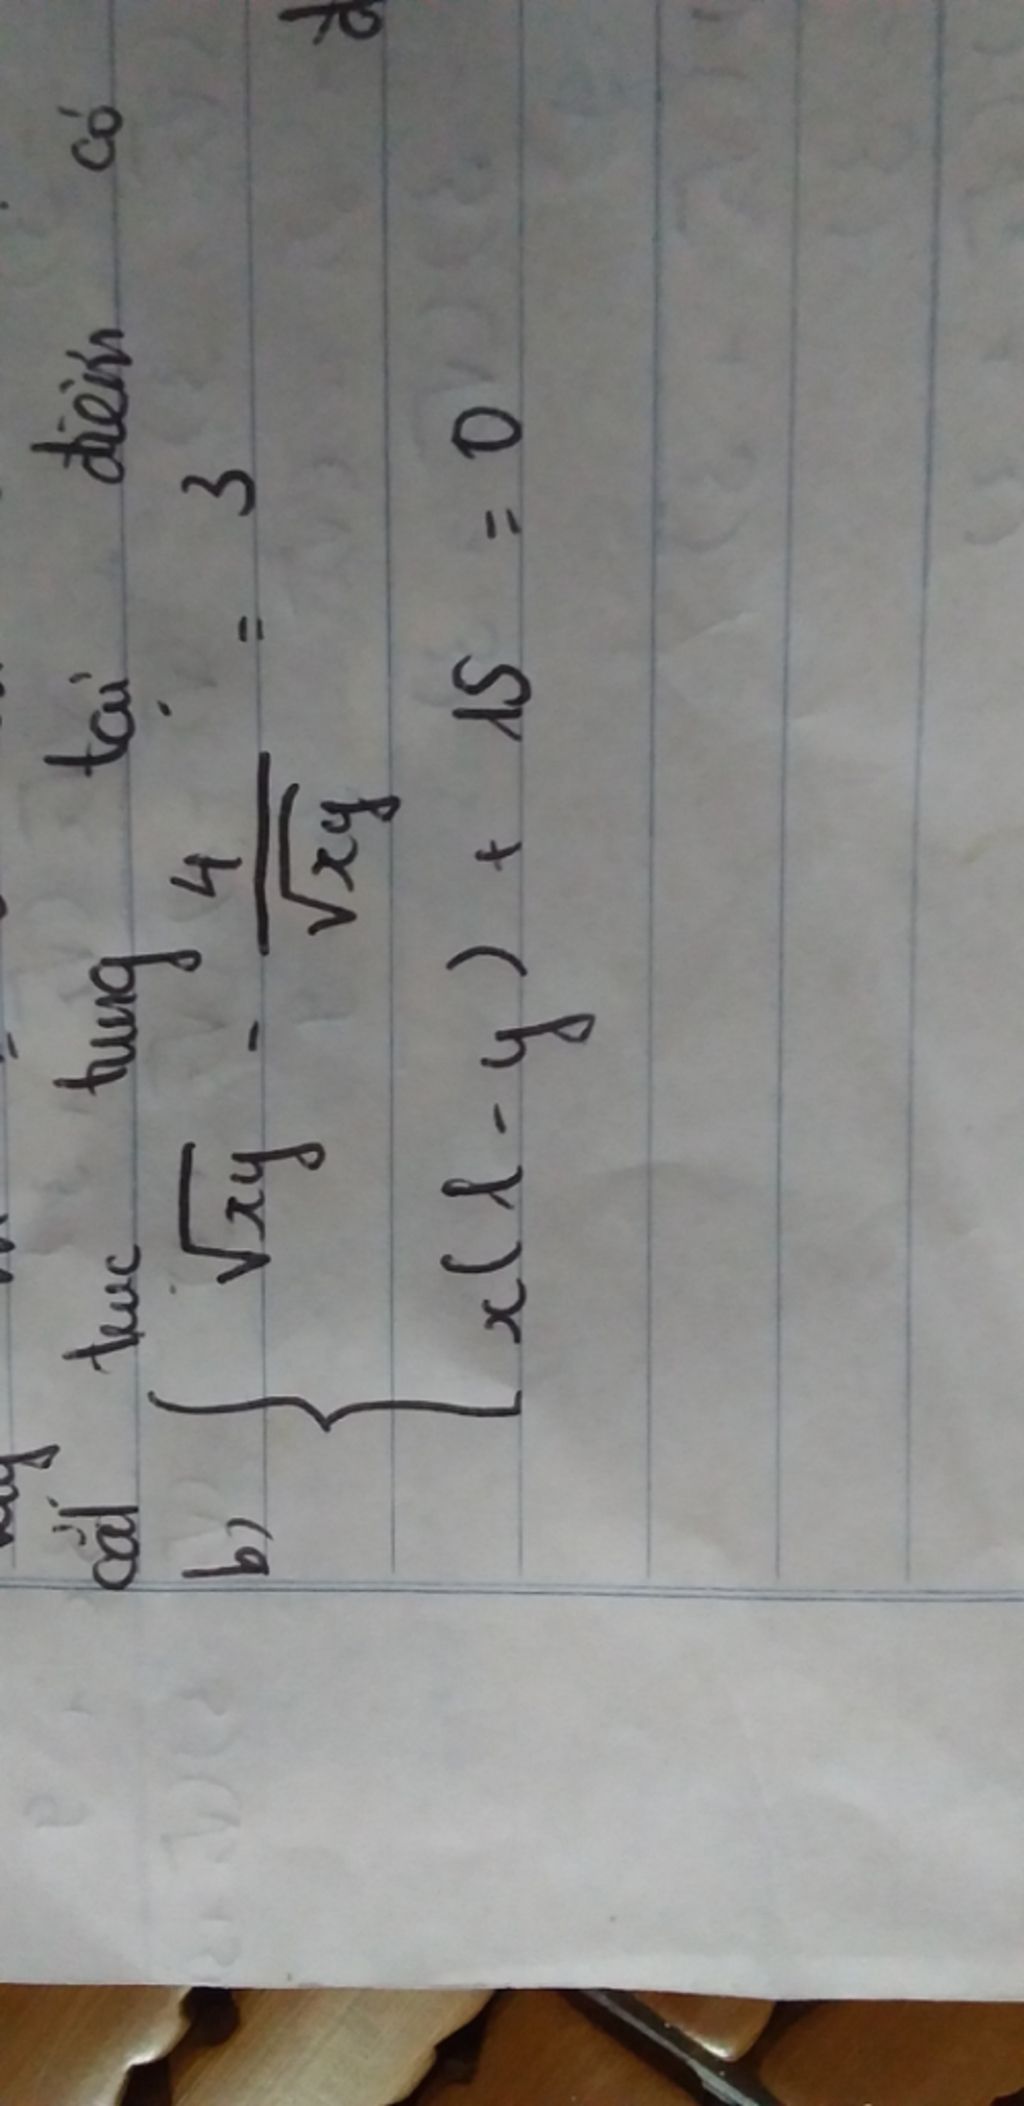 cắt trục tung tại điểm có
b) { √xy - 4/√xy = 3
x(1 - y) + 15 = 0